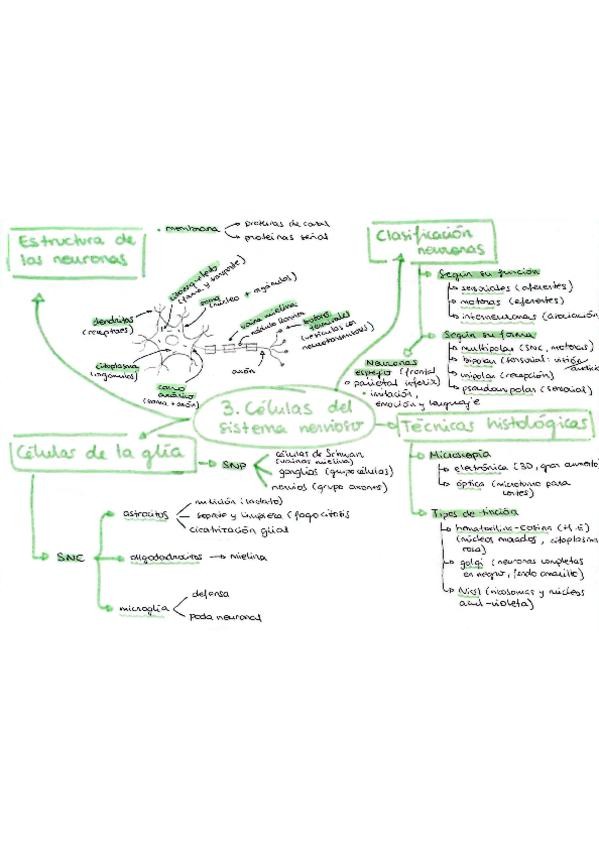 Estructura de
las neuronas
• membrana
proteínas de canal
proteínas señal
dendritas
(receptoras)
(forma y transporte)
soma
(núcleo + orgánulos)
vaina mielina
nódulo Ranvier
botones
terminales
(vesículas con
neurotransmisores)
citoplasma
(orgánulos)
cono
axónico
(soma + axón)
axón
Clasificación
neuronas
Según su función
sensoriales (aferentes)
motoras (eferentes)
interneuronas (asociación)
Según su forma
multipolar (SNC, motoras)
bipolar (sensorial: visión
unipolar (recepción)
pseudounipolar (sensorial)
Neuronas
espejo (frontal
o parietal inferior)
• imitación,
emoción y lenguaje
3. Células del
sistema nervioso
Células de la glía
SNP
células de Schwan
(vainas mielina)
ganglios (grupo células)
nervios (grupo axones)
SNC
astrocitos
nutrición (lactato)
soporte y limpieza (fagocitosis
cicatrización glial
oligodendrocitos → mielina
microglía
defensa
poda neuronal
Técnicas histológicas
Microscopía
electrónica (3D, gran aumento)
óptica (microtomo para
cortes)
Tipos de tinción
hematoxilina-eosina (H-E)
(núcleos morados, citoplasma
rosa)
golgi (neuronas completas
en negro, fondo amarillo)
Nissl (ribosomas y núcleos
azul-violeta)